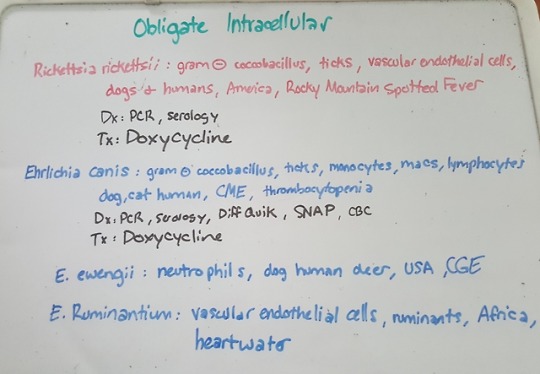 Obligate Intracellular
Rickettsia rickettsii : gram ⊖ coccobacillus, ticks, vascular endothelial cells,
dogs & humans, America, Rocky Mountain Spotted Fever
Dx: PCR, serology
Tx: Doxycycline
Ehrlichia canis : gram ⊖ coccobacillus, ticks, monocytes, macs, lymphocytes
dog, cat human, CME, thrombocytopenia
Dx: PCR, serology, Diff Quik, SNAP, CBC
Tx: Doxycycline
E. ewengii : neutrophils, dog human deer, USA, CGE
E. Ruminantium: vascular endothelial cells, ruminants, Africa,
heartwater